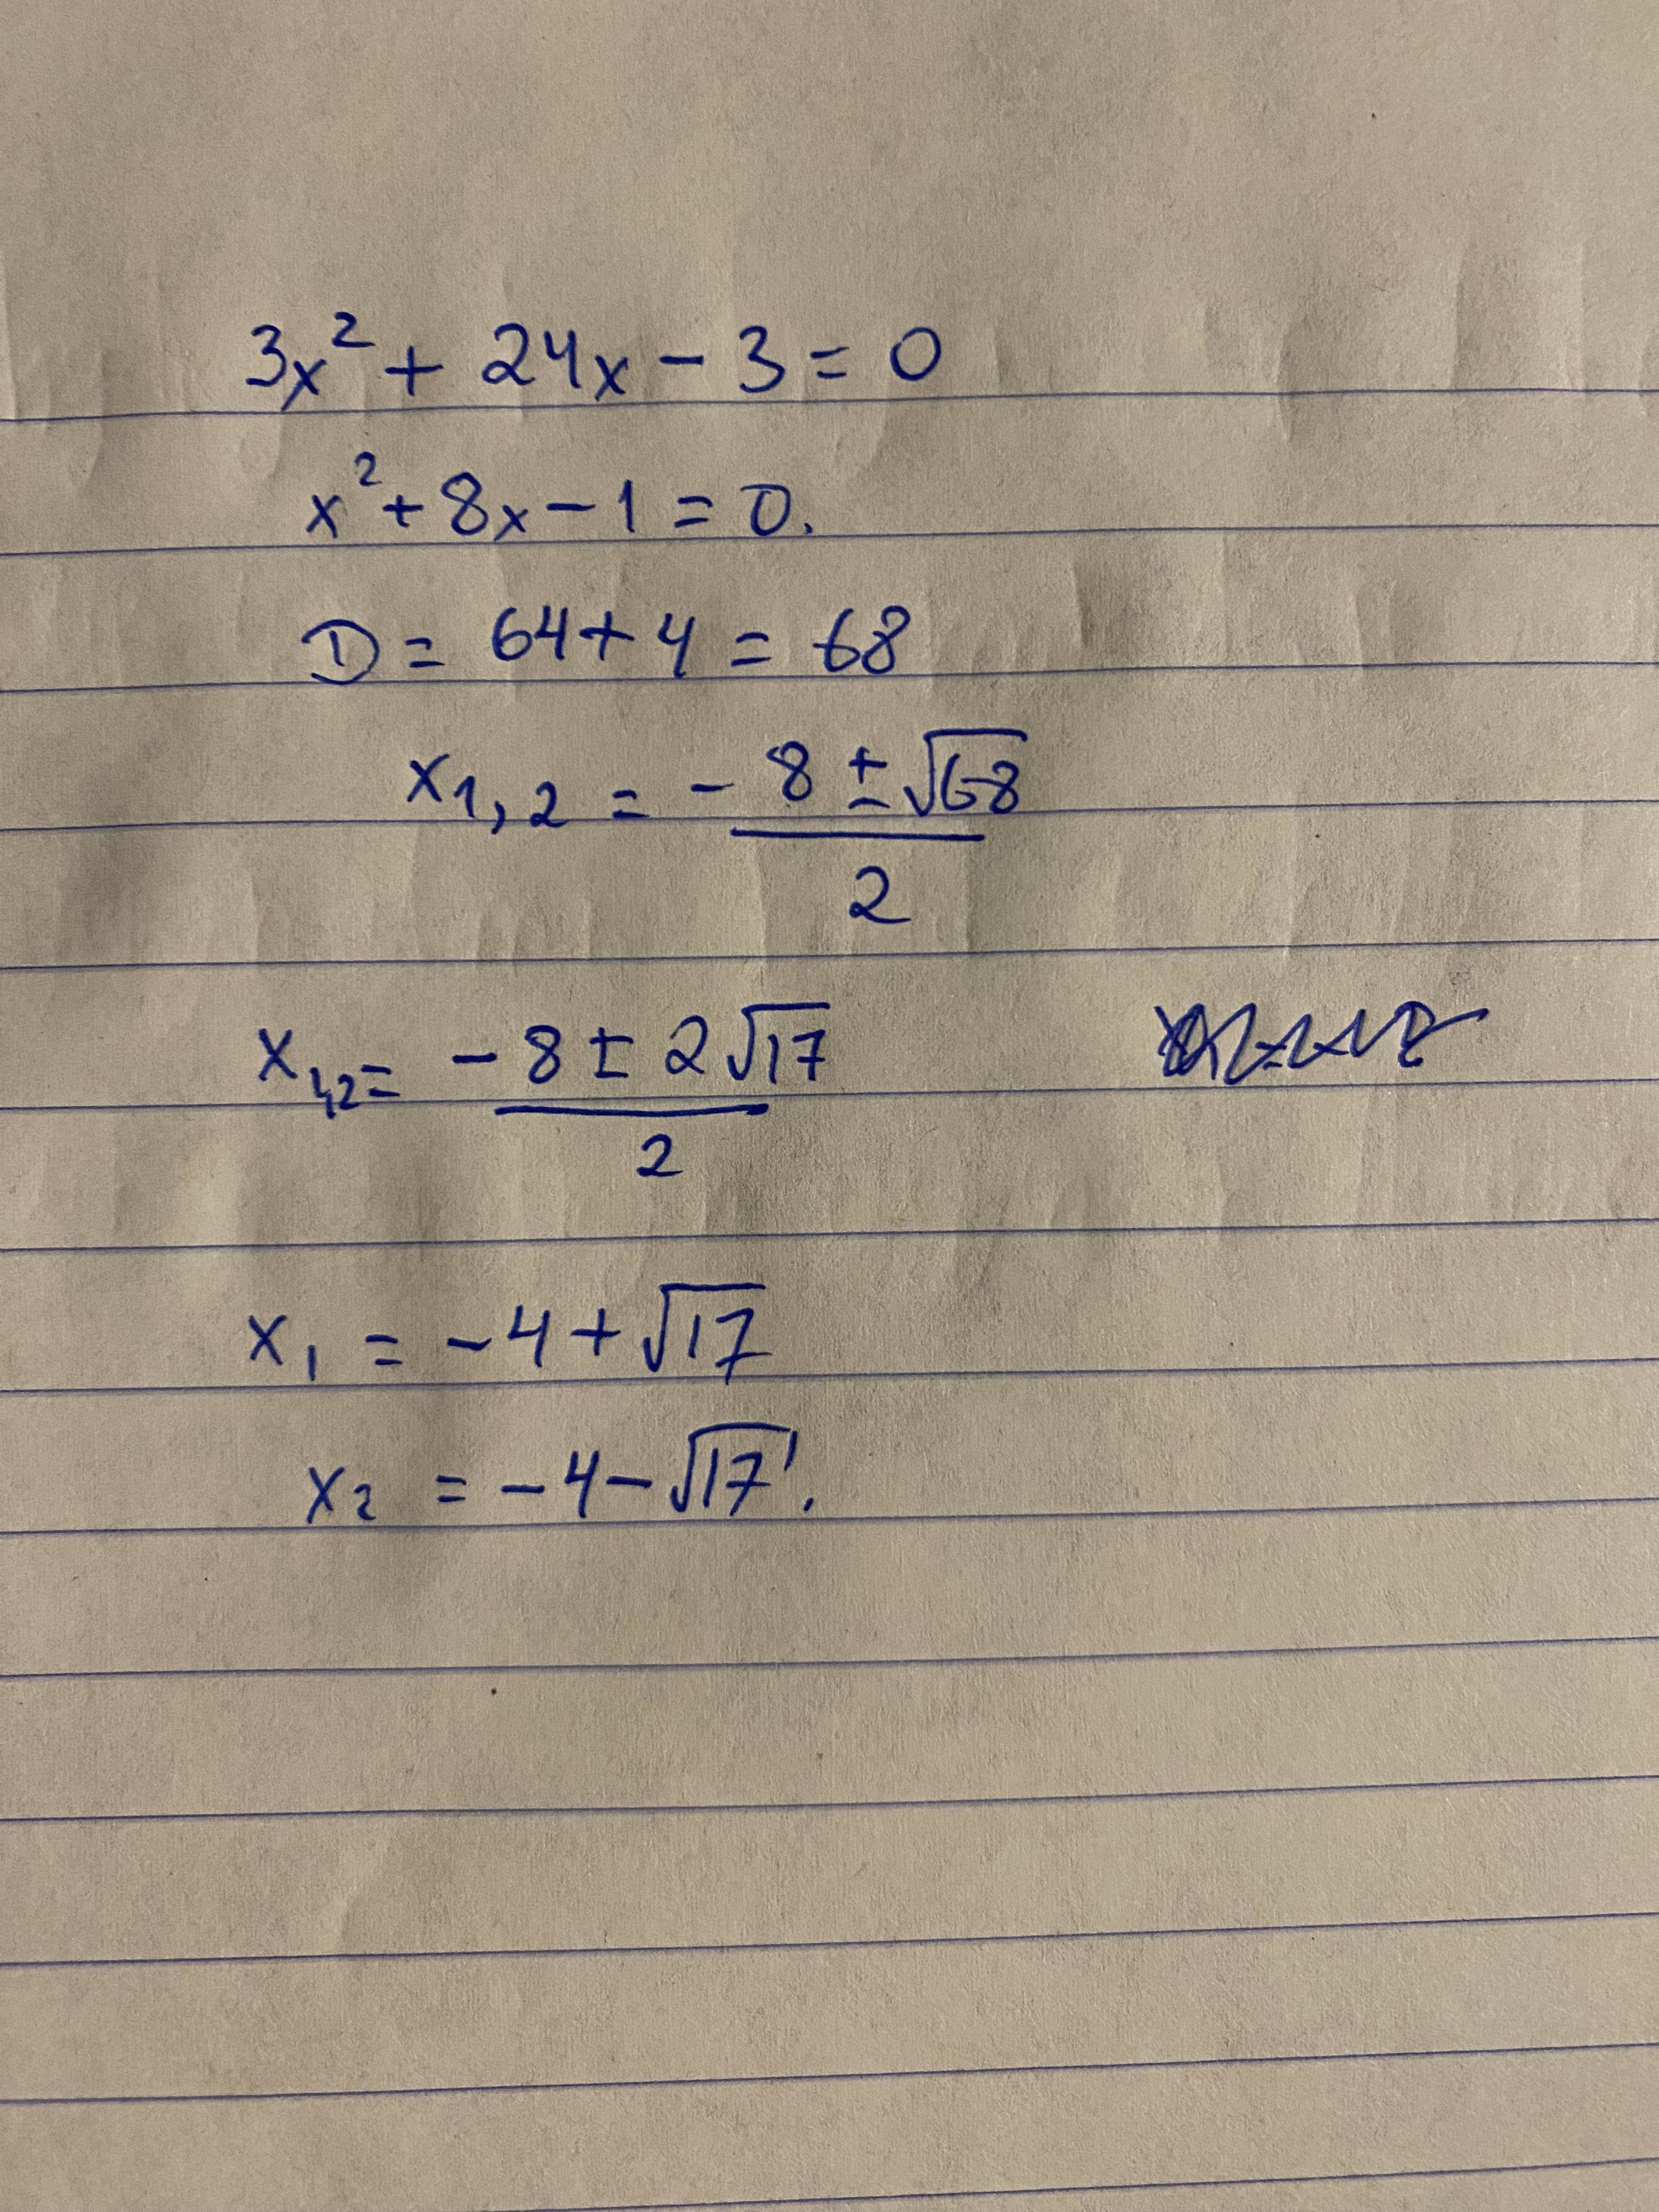 3x² + 24x - 3 = 0
x² + 8x - 1 = 0.
D = 64 + 4 = 68
x₁,₂ = - 8 ± √68
2
x₁,₂ = - 8 ± 2√17
2
x₁ = - 4 + √17
x₂ = - 4 - √17.